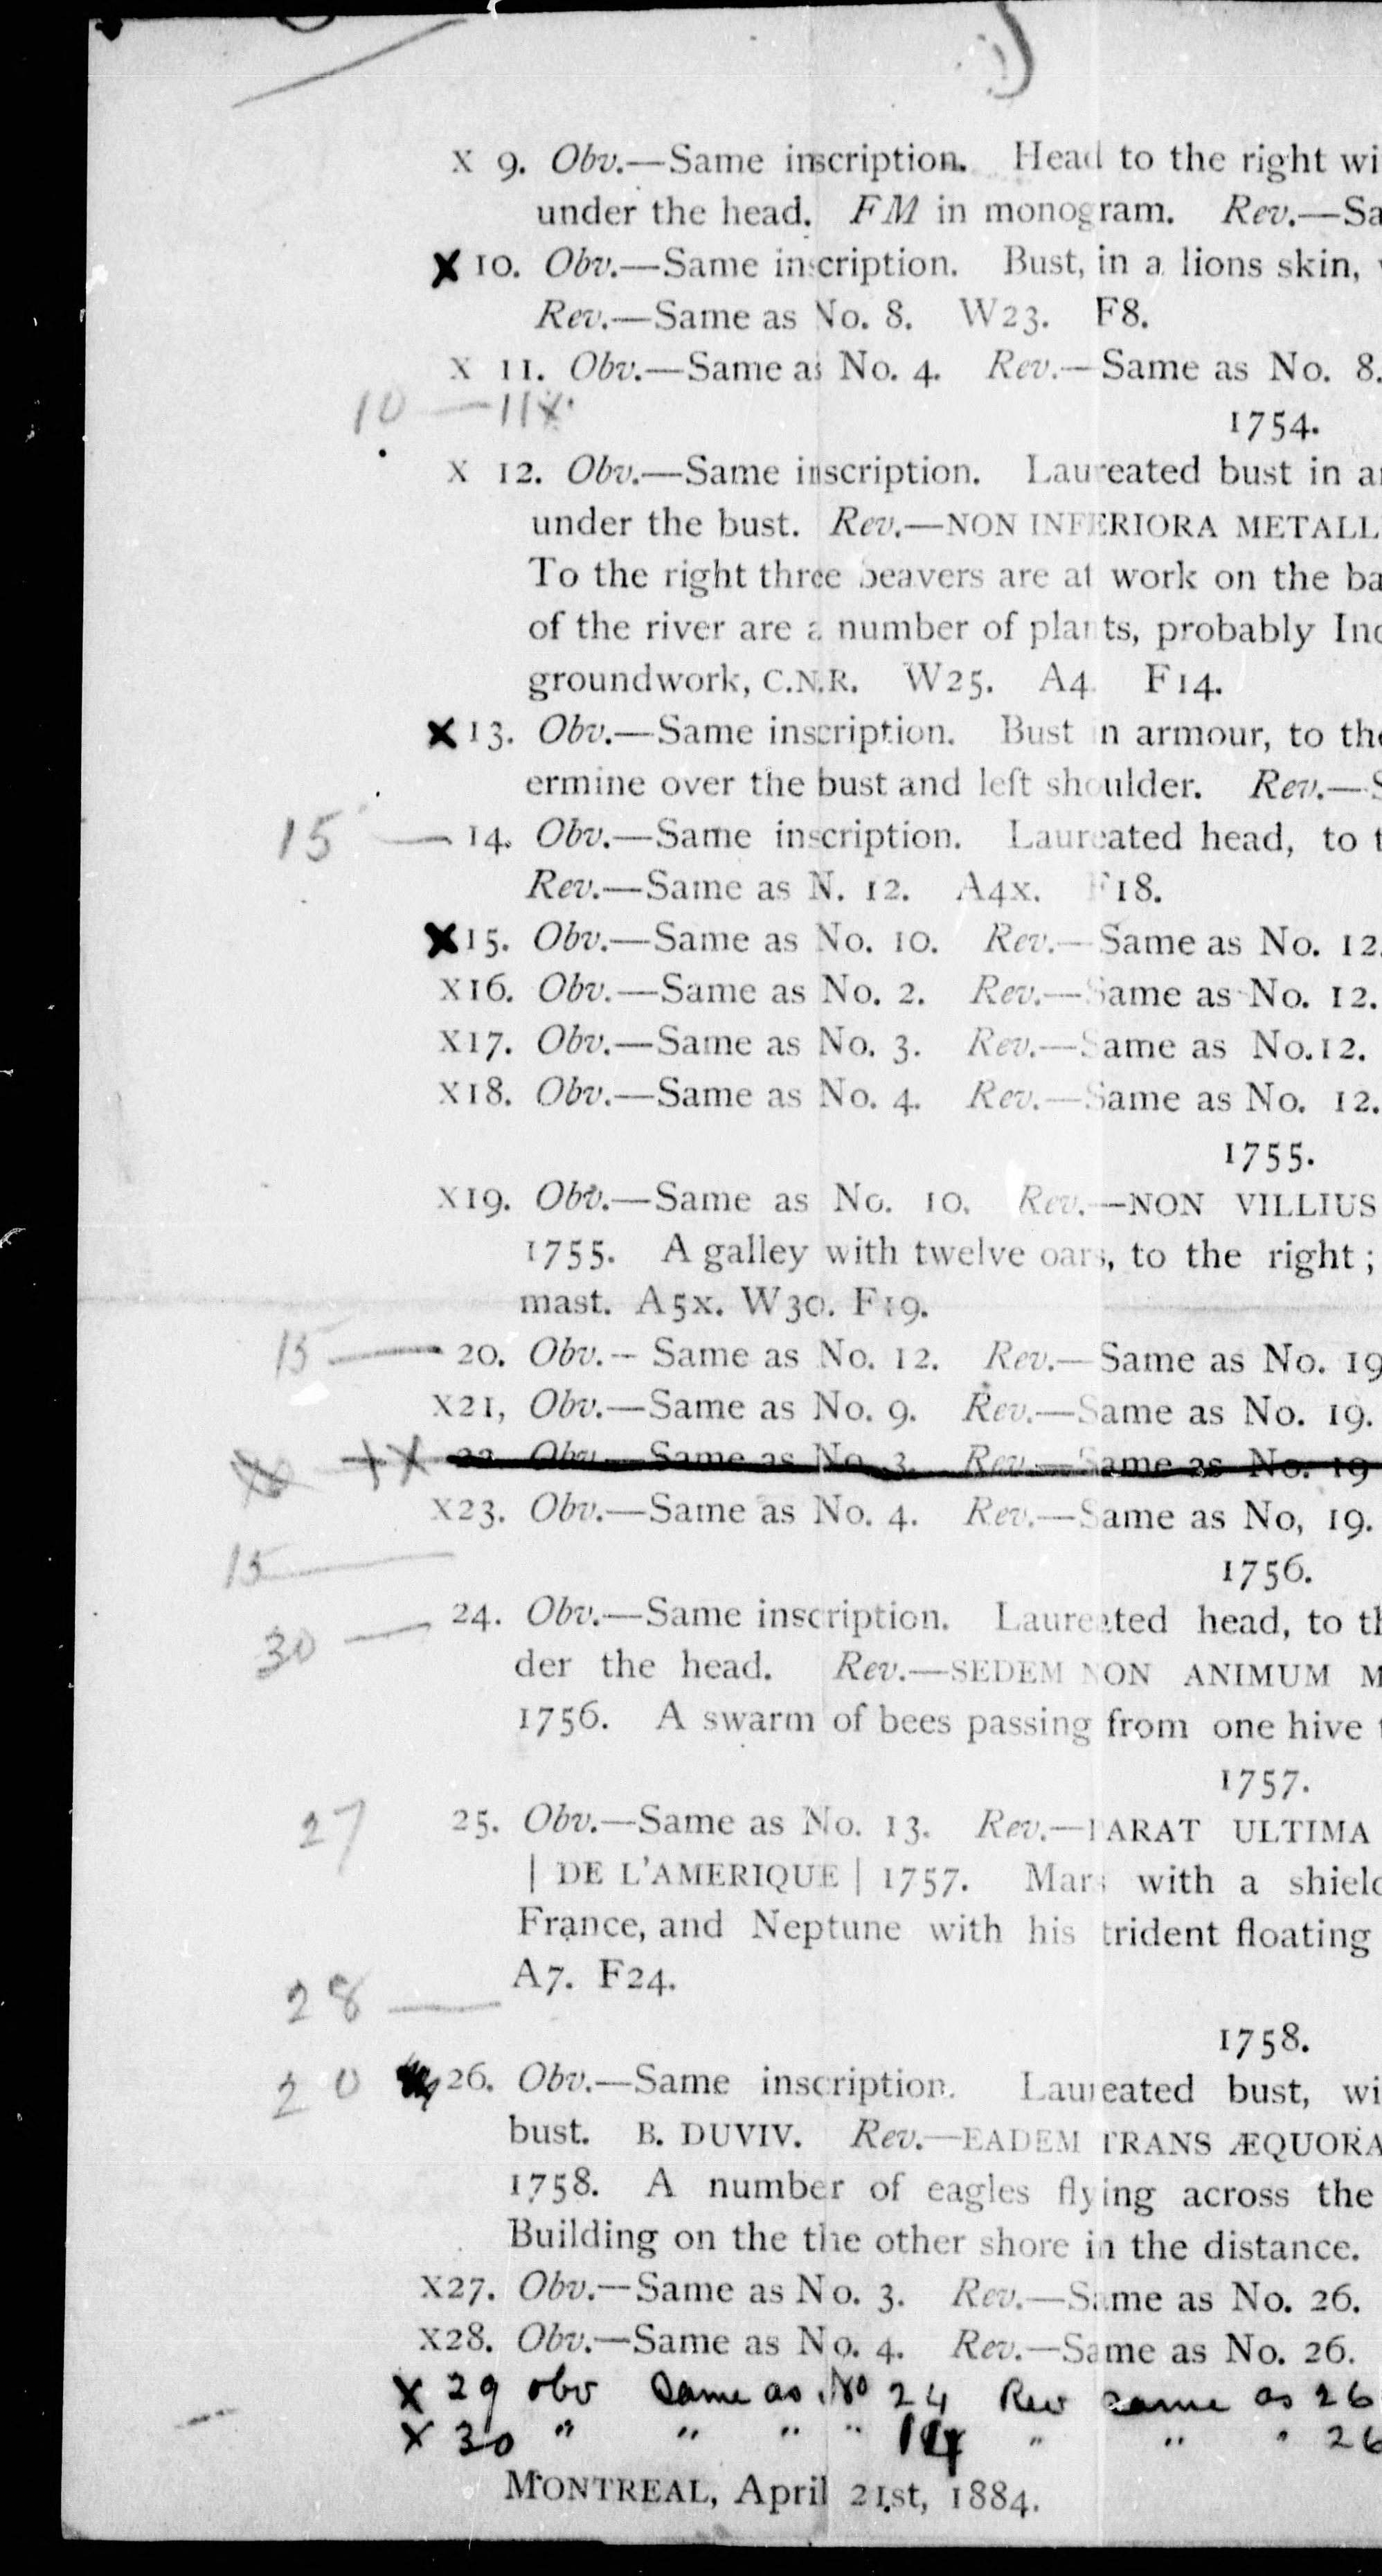 X 9. Obv.—Same inscription. Head to the right wi
under the head. FM in monogram. Rev.—Sa
X 10. Obv.—Same inscription. Bust, in a lions skin,
Rev.—Same as No. 8. W23. F8.
X 11. Obv.—Same as No. 4. Rev.—Same as No. 8.
10 — 11x.
1754.
X 12. Obv.—Same inscription. Laureated bust in a
under the bust. Rev.—NON INFERIORA METALL
To the right three beavers are at work on the ba
of the river are a number of plants, probably Ind
groundwork, C.N.R. W25. A4. F14.
X 13. Obv.—Same inscription. Bust in armour, to the
ermine over the bust and left shoulder. Rev.—S
15 — 14. Obv.—Same inscription. Laureated head, to t
Rev.—Same as N. 12. A4x. F18.
X 15. Obv.—Same as No. 10. Rev.—Same as No. 12.
X16. Obv.—Same as No. 2. Rev.—Same as No. 12.
X17. Obv.—Same as No. 3. Rev.—Same as No.12.
X18. Obv.—Same as No. 4. Rev.—Same as No. 12.
1755.
X19. Obv.—Same as No. 10. Rev.—NON VILLIUS
1755. A galley with twelve oars, to the right;
mast. A5x. W30. F19.
15 — 20. Obv.—Same as No. 12. Rev.—Same as No. 19
X21, Obv.—Same as No. 9. Rev.—Same as No. 19.
X 22. Obv.—Same as No. 3. Rev.—Same as No. 19
X23. Obv.—Same as No. 4. Rev.—Same as No, 19.
15 —
1756.
30 — 24. Obv.—Same inscription. Laureated head, to th
der the head. Rev.—SEDEM NON ANIMUM M
1756. A swarm of bees passing from one hive t
1757.
27 25. Obv.—Same as No. 13. Rev.—PARAT ULTIMA
| DE L'AMERIQUE | 1757. Mars with a shield
France, and Neptune with his trident floating
A7. F24.
28 —
1758.
20 26. Obv.—Same inscription. Laureated bust, wi
bust. B. DUVIV. Rev.—EADEM TRANS ÆQUORA
1758. A number of eagles flying across the
Building on the the other shore in the distance.
X27. Obv.—Same as No. 3. Rev.—Same as No. 26.
X28. Obv.—Same as No. 4. Rev.—Same as No. 26.
X 29 obv Same as No 24 Rev same as 26
X 30 " " " " 14 " " " 26
MONTREAL, April 21st, 1884.